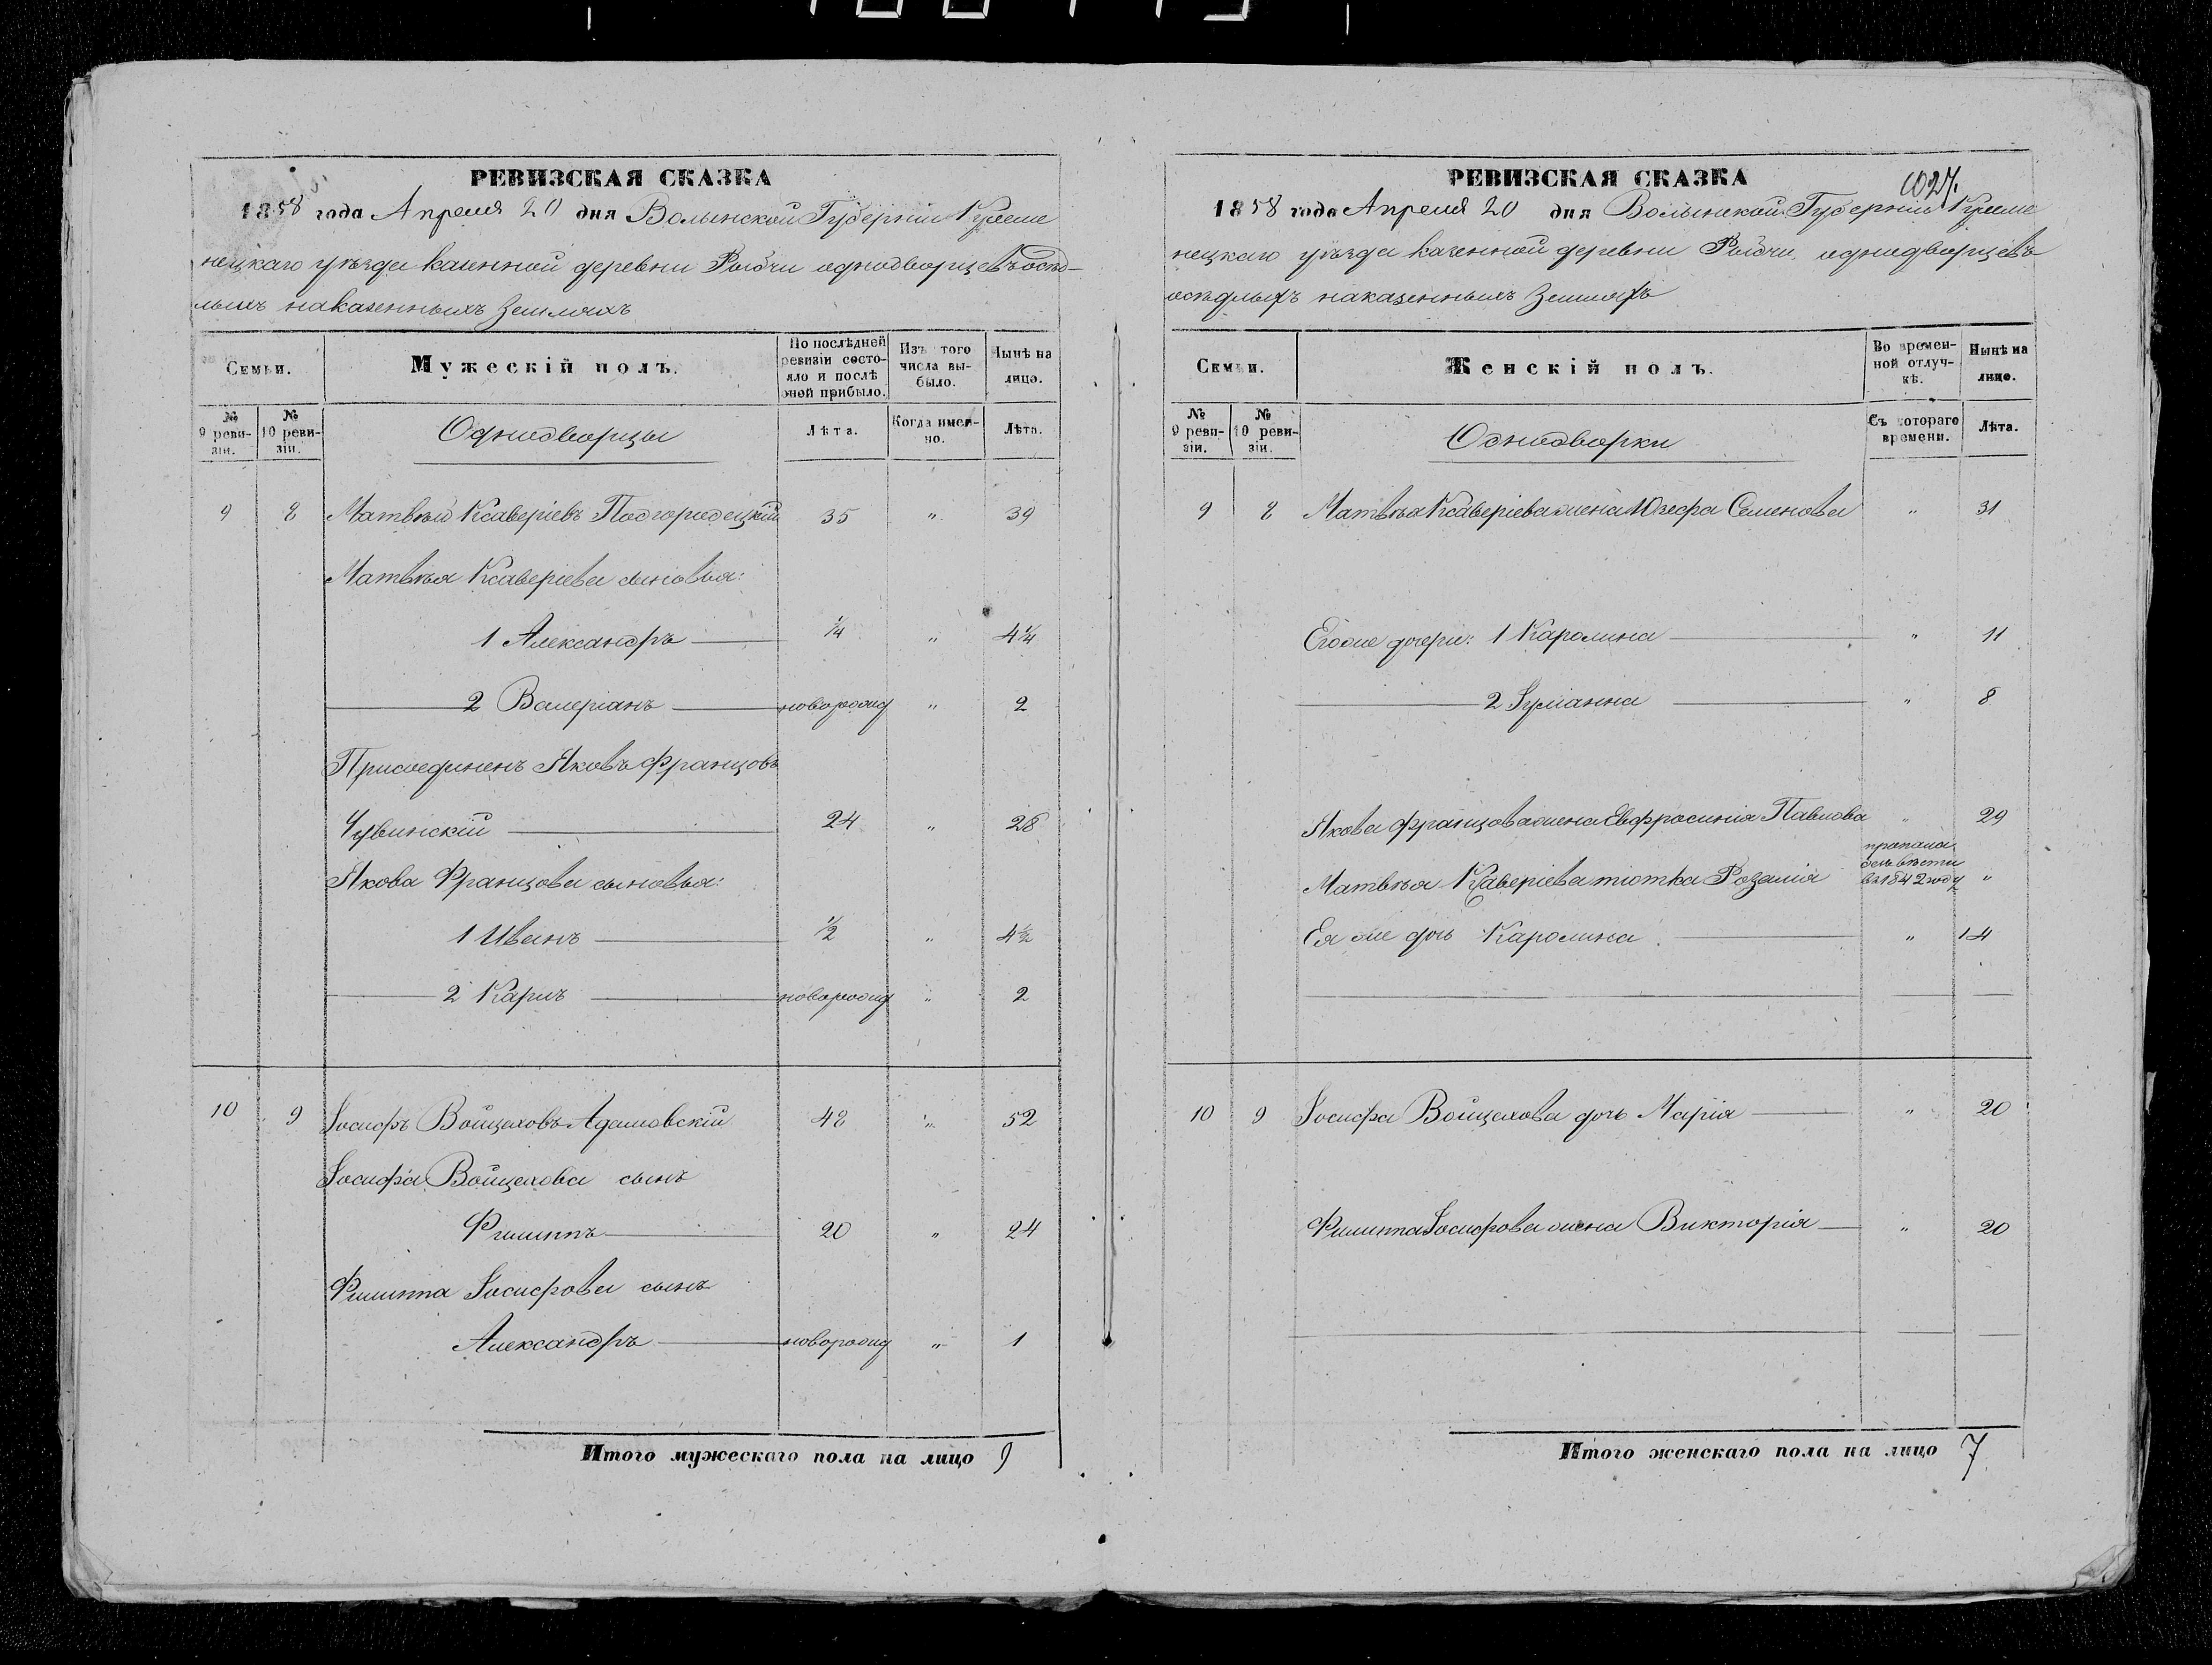 РЕВИЗСКАЯ СКАЗКА
1858 года Апреля 20 дня Волынской Губерніи Креме
нецкаго уѣзда казенной деревни Рыдчи однодворцевъ осѣд-
лыхъ на казенныхъ земляхъ
Семьи.
Мужескій полъ.
По послѣдней ревизіи состояло и послѣ оной прибыло.
Изъ того числа выбыло.
Нынѣ на лицо.
№ 9 ревизіи.
№ 10 ревизіи.
Однодворцы
Лѣта.
Когда именно.
Лѣта.
9 8 Матвѣй Ксаверіевъ Подгородецкій 35 " 39
Матвѣя Ксаверіева сыновья:
1 Александръ 1/4 " 4 1/4
2 Валеріанъ новорожд " 2
Присоединенъ Яковъ Францовъ
Чувинскій 24 " 28
Якова Францова сыновья:
1 Иванъ 1/2 " 4 1/2
2 Карлъ новорожд " 2
10 9 Іосифъ Войцеховъ Адамовскій 48 " 52
Іосифа Войцехова сынъ
Филиппъ 20 " 24
Филиппа Іосифова сынъ
Александръ новорожд " 1
Итого мужескаго пола на лицо 9
РЕВИЗСКАЯ СКАЗКА
1027.
1858 года Апреля 20 дня Волынской Губерніи Креме
нецкаго уѣзда казенной деревни Рыдчи однодворцевъ
осѣдлыхъ на казенныхъ земляхъ
Семьи.
Женскій полъ.
Во временной отлучкѣ.
Нынѣ на лицо.
№ 9 ревизіи.
№ 10 ревизіи.
Однодворки
Съ котораго времени.
Лѣта.
9 8 Матвѣя Ксаверіева жена Юзефа Семенова " 31
Его же дочери: 1 Каролина " 11
2 Іуліанна " 8
Якова Францова жена Евфросинія Павлова " 29
пропала
безъ вѣсти
Матвѣя Ксаверіева тіотка Розалія въ 1842 году "
Ея же дочь Каролина " 14
10 9 Іосифа Войцехова дочь Марія " 20
Филиппа Іосифова жена Викторія " 20
Итого женскаго пола на лицо 7